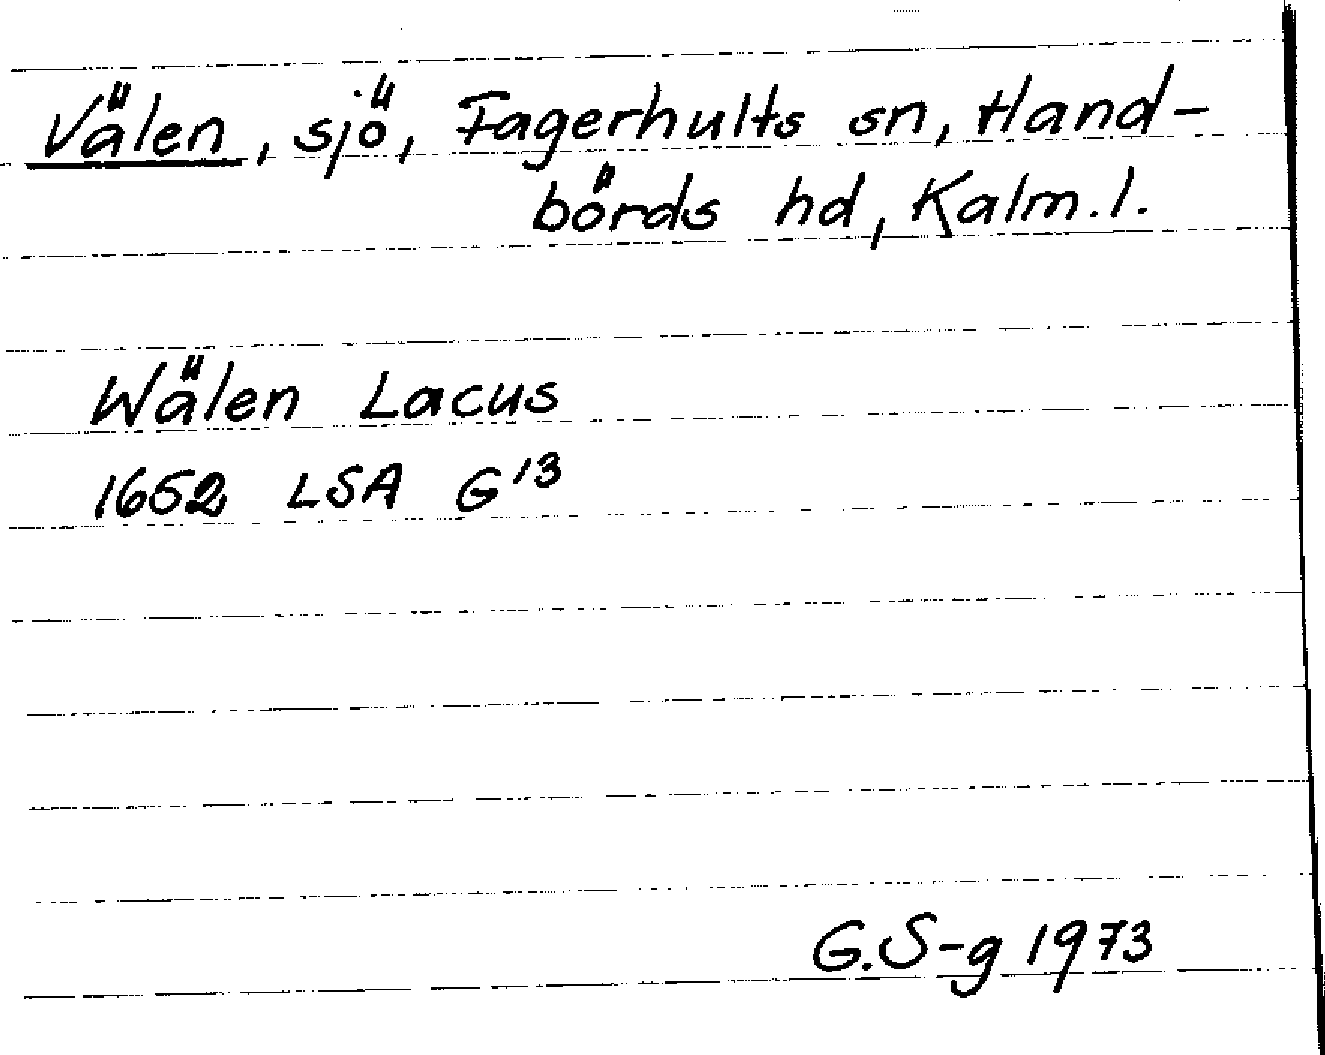 Välen, sjö, Fagerhults sn, Hand-
börds hd, Kalm.l.
Wälen Lacus
1652 LSA G¹³
G.S-g 1973